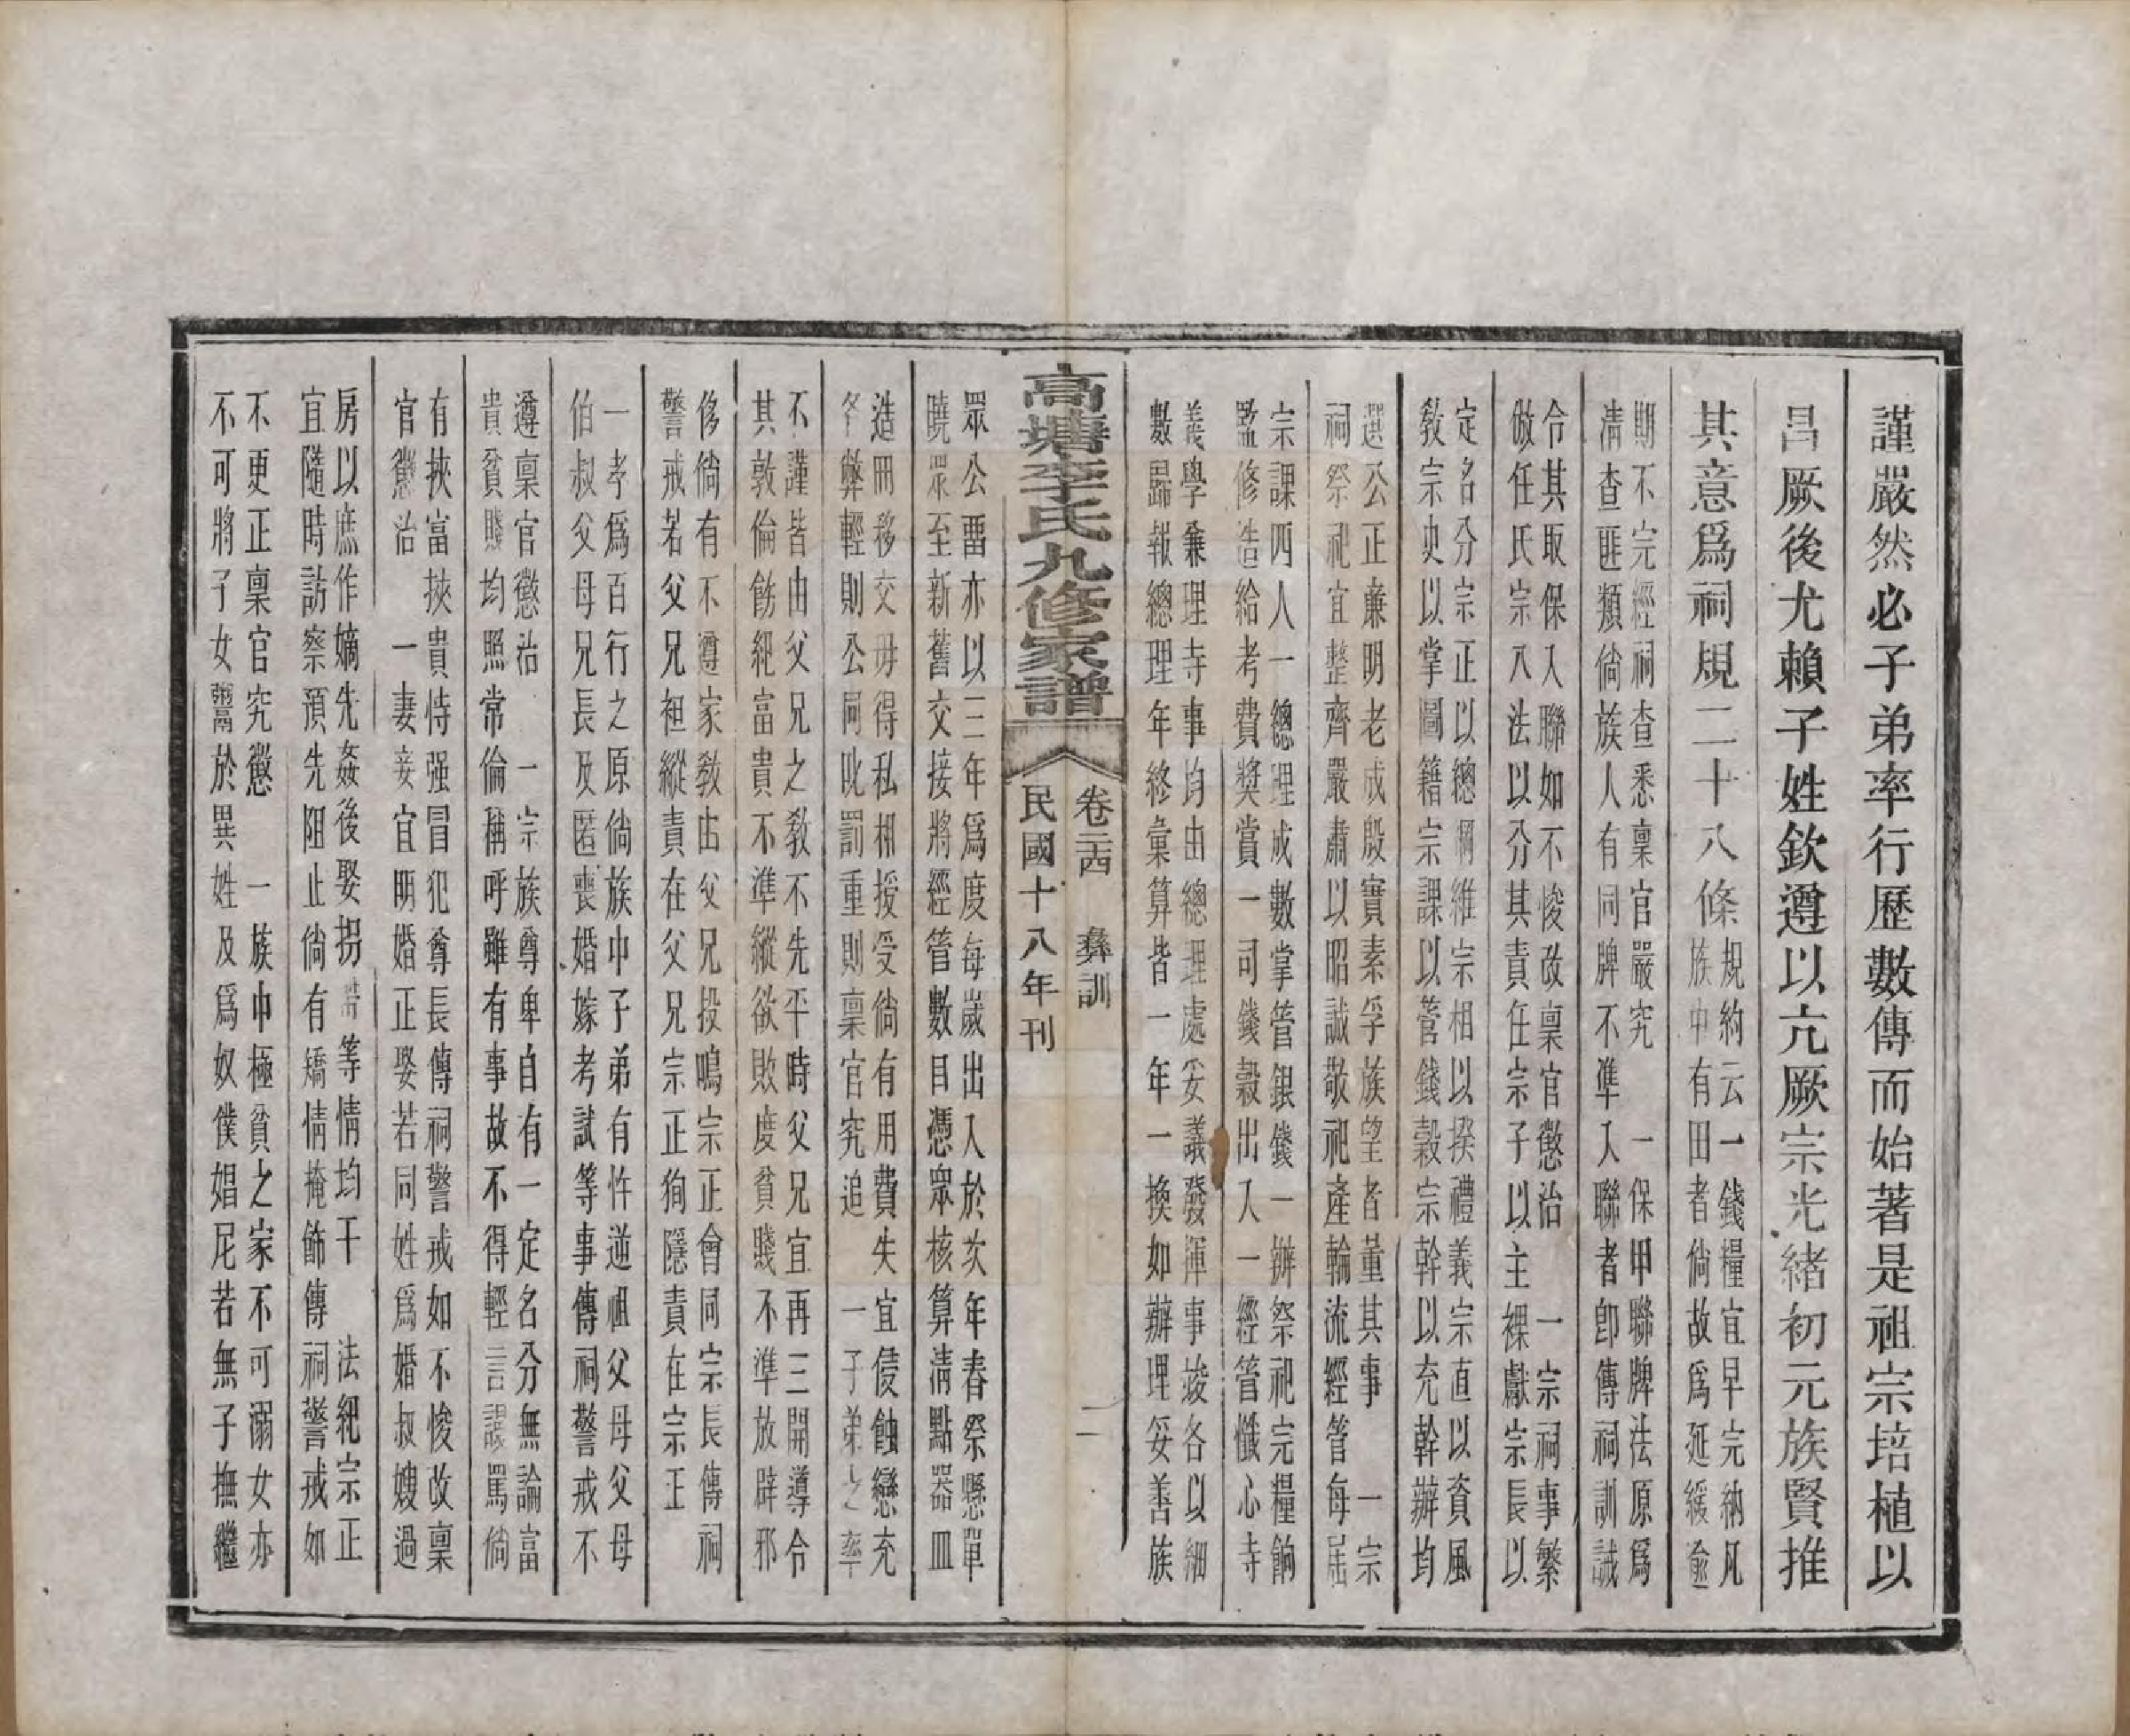 謹嚴然必子弟率行歷數傳而始著是祖宗培植以
昌厥後尤賴子姓欽遵以亢厥宗光緒初元族賢推
其意爲祠規二十八條
規約云一錢糧宜早完納凡
族中有田者倘故爲延緩逾
期不完經祠查悉稟官嚴究 一保甲聯牌法原爲
清查匪類倘族人有同牌不準入聯者卽傳祠訓誡
令其取保入聯如不悛改稟官懲治 一宗祠事繁
倣任氏宗八法以分其責任宗子以主祼獻宗長以
定名分宗正以總綱維宗相以揆禮義宗直以資風
敎宗史以掌圖籍宗課以管錢穀宗幹以充幹辦均
選公正廉明老成殷實素孚族望者董其事 一宗
祠祭祀宜整齊嚴肅以昭誠敬祀產輪流經管每屆
宗課四人一總理成數掌管銀錢一辦祭祀完糧餉
監修造給考費獎賞一司錢穀出入一經管懺心寺
義學兼理寺事均由總理處妥議發揮事竣各以細
數歸報總理年終彙算皆一年一換如辦理妥善族
眾公畱亦以三年爲度每歲出入於次年春祭懸單
曉眾至新舊交接將經管數目憑眾核算淸點器皿
造冊移交毋得私相授受倘有用費失宜侵蝕戀充
各弊輕則公同叱罰重則稟官究追 一子弟之率
不謹皆由父兄之敎不先平時父兄宜再三開導令
其敦倫飭紀富貴不準縱欲敗度貧賤不準放辟邪
侈倘有不遵家敎由父兄投鳴宗正會同宗長傳祠
警戒若父兄袒縱責在父兄宗正狥隱責在宗正
一孝爲百行之原倘族中子弟有忤逆祖父母父母
伯叔父母兄長及匿喪婚嫁考試等事傳祠警戒不
遵稟官懲治 一宗族尊卑自有一定名分無論富
貴貧賤均照常倫稱呼雖有事故不得輕言謾罵倘
有挾富挾貴恃强冒犯尊長傳祠警戒如不悛改稟
官懲治 一妻妾宜明婚正娶若同姓爲婚叔嫂過
房以庶作嫡先姦後娶拐帶等情均干 法紀宗正
宜隨時訪察預先阻止倘有矯情掩飾傳祠警戒如
不更正稟官究懲 一族中極貧之家不可溺女亦
不可將子女鬻於異姓及爲奴僕娼尼若無子撫繼
高塘李氏九修家譜
卷二十四 彝訓
二
民國十八年刊